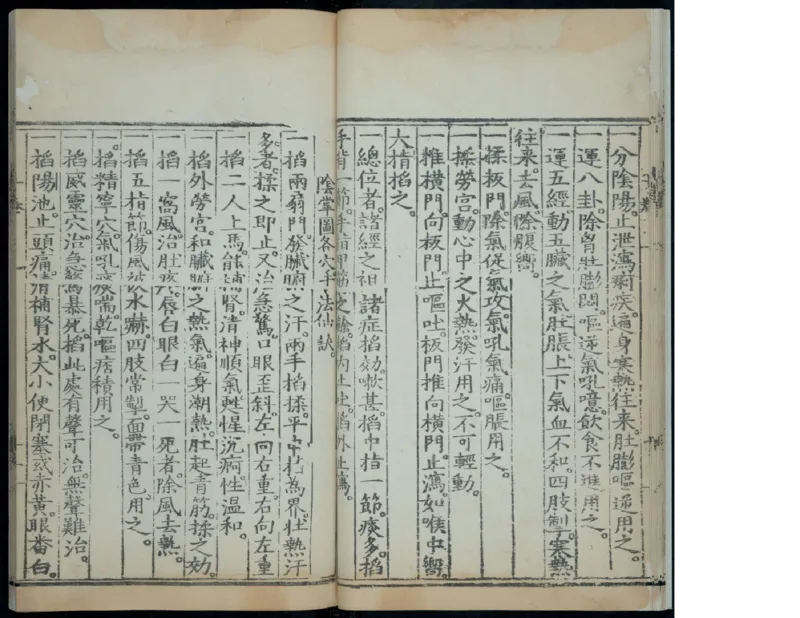 一分陰陽。止泄瀉痢疾。遍身寒熱往來。肚膨嘔逆用之。
一運八卦。除胷肚膨悶。嘔逆氣吼噫。飲食不進用之。
一運五經。動五臟之氣。肚脹上下氣血不和。四肢掣。寒熱
往來。去風除腹嚮。
一揉板門。除氣促氣攻。氣吼氣痛。嘔脹用之。
一揉勞宫。動心中之火熱。發汗用之。不可輕動。
一推橫門向板門。止嘔吐。板門推向橫門。止瀉。如喉中嚮。
大指掐之。
一總位者。諸經之祖。諸症掐効。嗽甚。掐中指一節。痰多。掐
手背一節。手指甲筋之餘。掐內止吐。掐外止瀉。
陰掌圖各穴手法仙訣。
一掐兩扇門。發臟腑之汗。兩手掐揉。平中指為界。壯熱汗
多者。揉之即止。又治急驚。口眼歪斜。左向右重。右向左重
一掐二人上馬。能補腎。清神順氣。甦惺沉痾。性溫和。
一掐外勞宮。和臟腑之熱氣。遍身潮熱。肚起青筋。揉之効。
一掐一窩風。治肚疼。唇白眼白一哭一死者。除風去熱。
一掐五指節。傷風被水嚇。四肢常掣。面帶青色用之。
一掐精寧穴。氣吼痰喘。乾嘔痞積用之。
一掐威靈穴。治急驚暴死。掐此處有聲可治。無聲難治。
一掐陽池。止頭痛。清補腎水。大小便閉塞。或赤黃。眼番白。